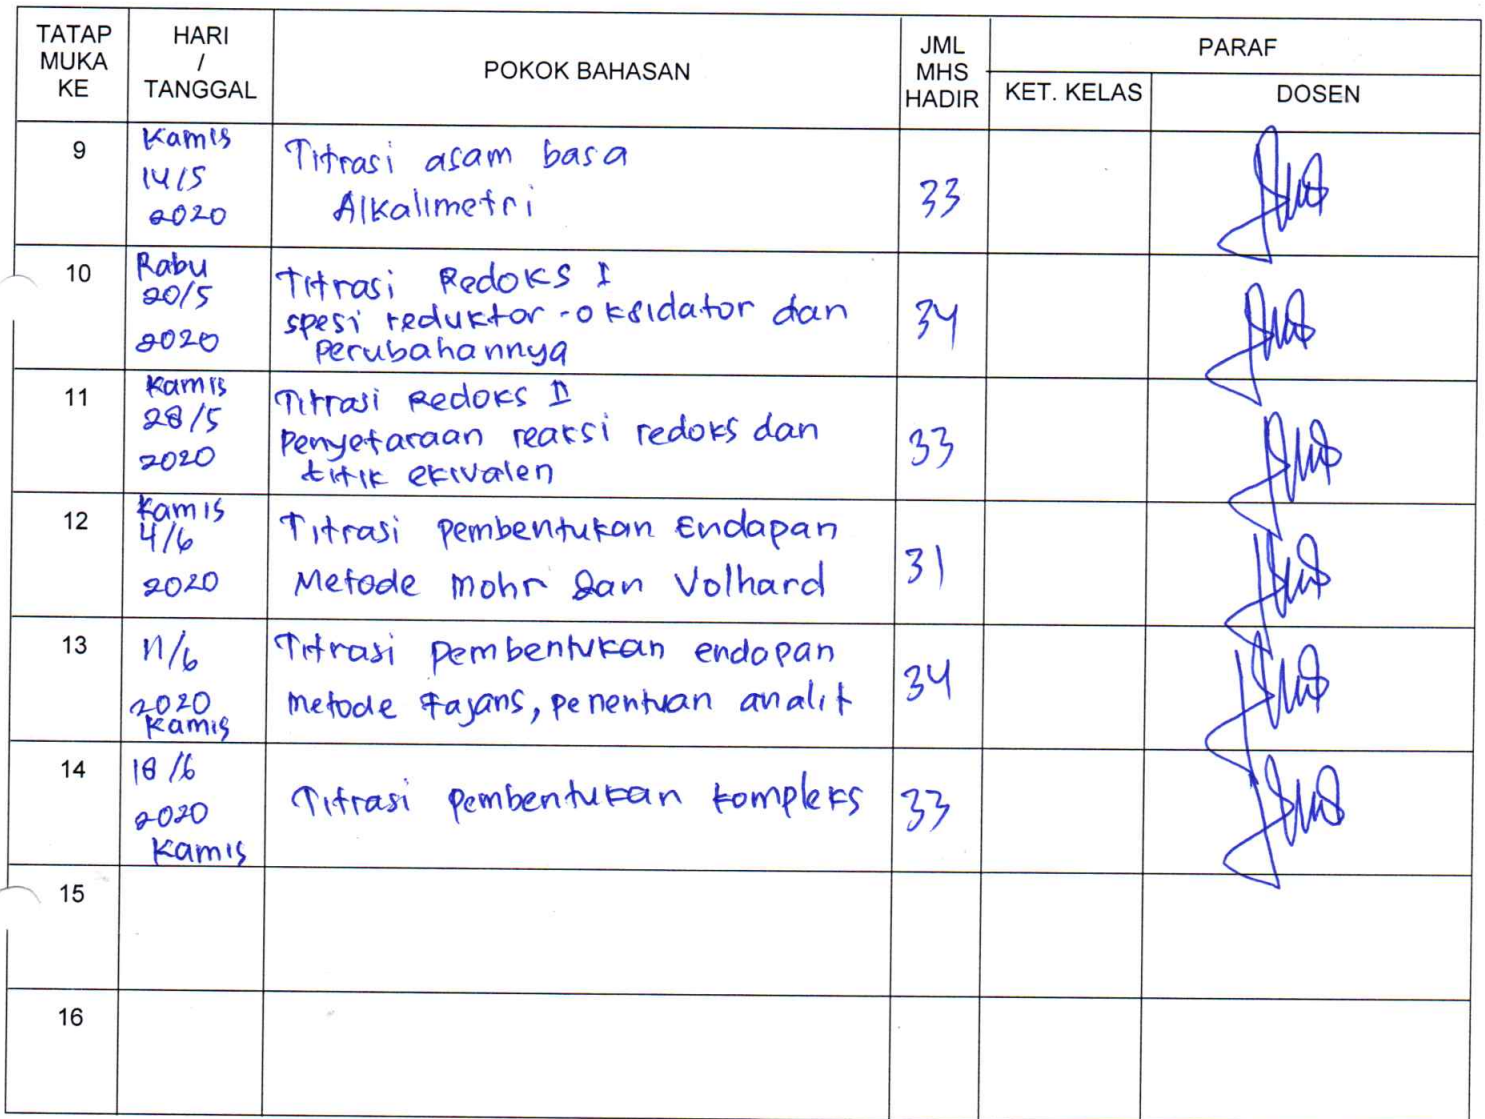 TATAP MUKA KE
HARI / TANGGAL
POKOK BAHASAN
JML MHS HADIR
PARAF
KET. KELAS
DOSEN
9
Kamis
14/5
2020
Titrasi asam basa
Alkalimetri
33
10
Rabu
20/5
2020
Titrasi Redoks I
spesi reduktor-oksidator dan
perubahannya
34
11
Kamis
28/5
2020
Titrasi Redoks II
Penyetaraan reaksi redoks dan
titik ekivalen
33
12
Kamis
4/6
2020
Titrasi pembentukan Endapan
Metode Mohr dan Volhard
31
13
11/6
2020
Kamis
Titrasi pembentukan endapan
metode Fajans, penentuan analit
34
14
18/6
2020
Kamis
Titrasi pembentukan kompleks
33
15
16